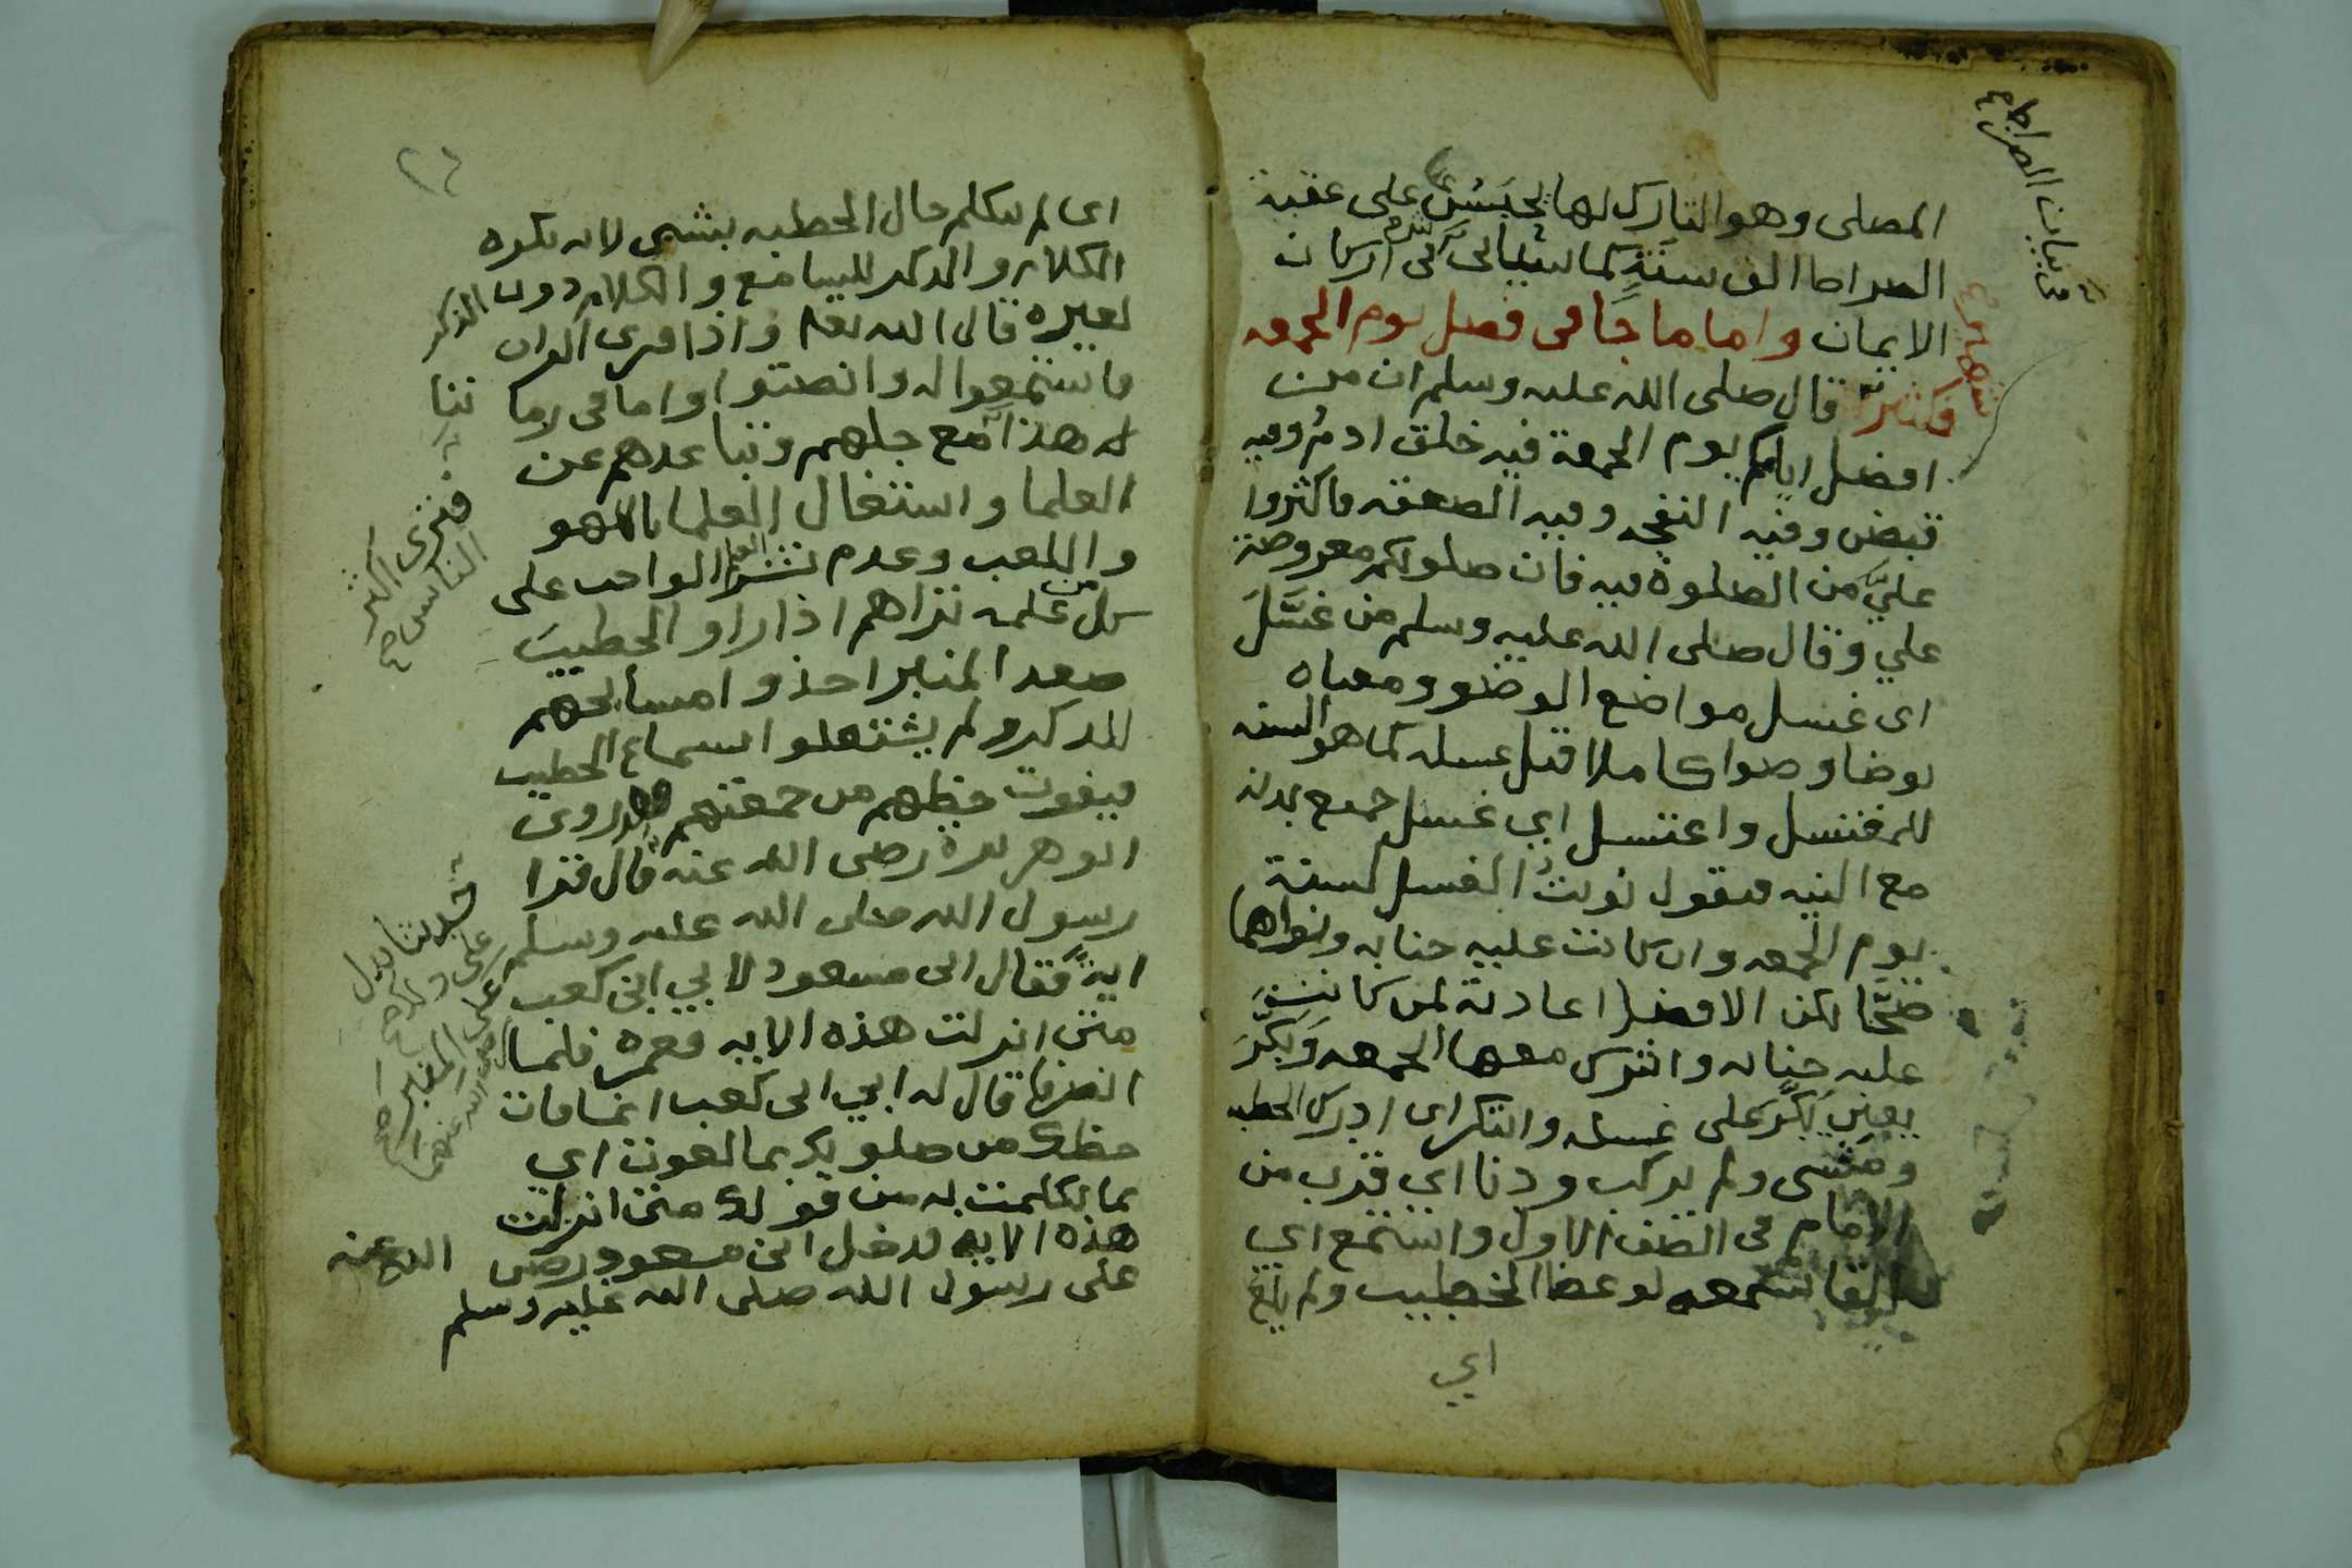 المصلى وهو التارك لها يحبس على عقبة
الصراط الف سنة كما سياتى فى اركان
الايمان واما ما جا فى فضل يوم الجمعه
فكثير قال صلى الله عليه وسلم ان من
افضل ايامكم يوم الجمعة فيه خلق ادم وفيه
قبض وفيه النفخه وفيه الصعقه فاكثروا
عليّ من الصلوة فيه فان صلوتكم معروضة
علي وقال صلى الله عليه وسلم من غسّل
اى غسل مواضع الوضو ومعناه
توضا وضوا كاملا قبل غسله كما هو السنه
للمغتسل واغتسل اي غسل جميع بدنه
مع النيه فيقول نويت الغسل لسنة
يوم الجمعه وان كانت عليه جنابه ونواهما
صحّا لكن الافضل اعادته لمن كانت
عليه جنابه وبكّر
يعني بكّر على غسله وابتكر اى ادرك الخطبه
ومشى ولم يركب ودنا اي قرب من
الامام فى الصف الاول واستمع اي
القا سمعه لوعظ الخطيب ولم يلغ
اي
فى بيان الصراط
اى لم يتكلم حال الخطبه بشى لانه يكره
الكلام والذكر للسامع والكلام دون الذكر
لغيره قال الله تعا واذا قرى القران
فاستمعوا له وانصتوا واما فى زماننا
هذا مع جهلهم وتباعدهم عن
العلما واشتغال العلما باللهو
واللعب وعدم نشر العلم الواجب على
كل من علمه تراهم اذا راو الخطيب
صعد المنبر اخذوا مسابحهم
للذكر ولم يشتغلوا بسماع الخطيب
فيفوت حظهم من جمعتهم وقد روى
ابو هريرة رضى الله عنه قال قرا
رسول الله صلى الله عليه وسلم على المنبر
اية فقال ابن مسعود لابي ابن كعب
متى انزلت هذه الايه فغمزه فلما
انصرفا قال له ابي ابن كعب انما فات
حظك من صلوتك بما لغوت اي
بما تكلمت به من قولك متى انزلت
هذه الايه فدخل ابن مسعود رضى الله عنه
على رسول الله صلى الله عليه وسلم
فترى اكثر
الناس